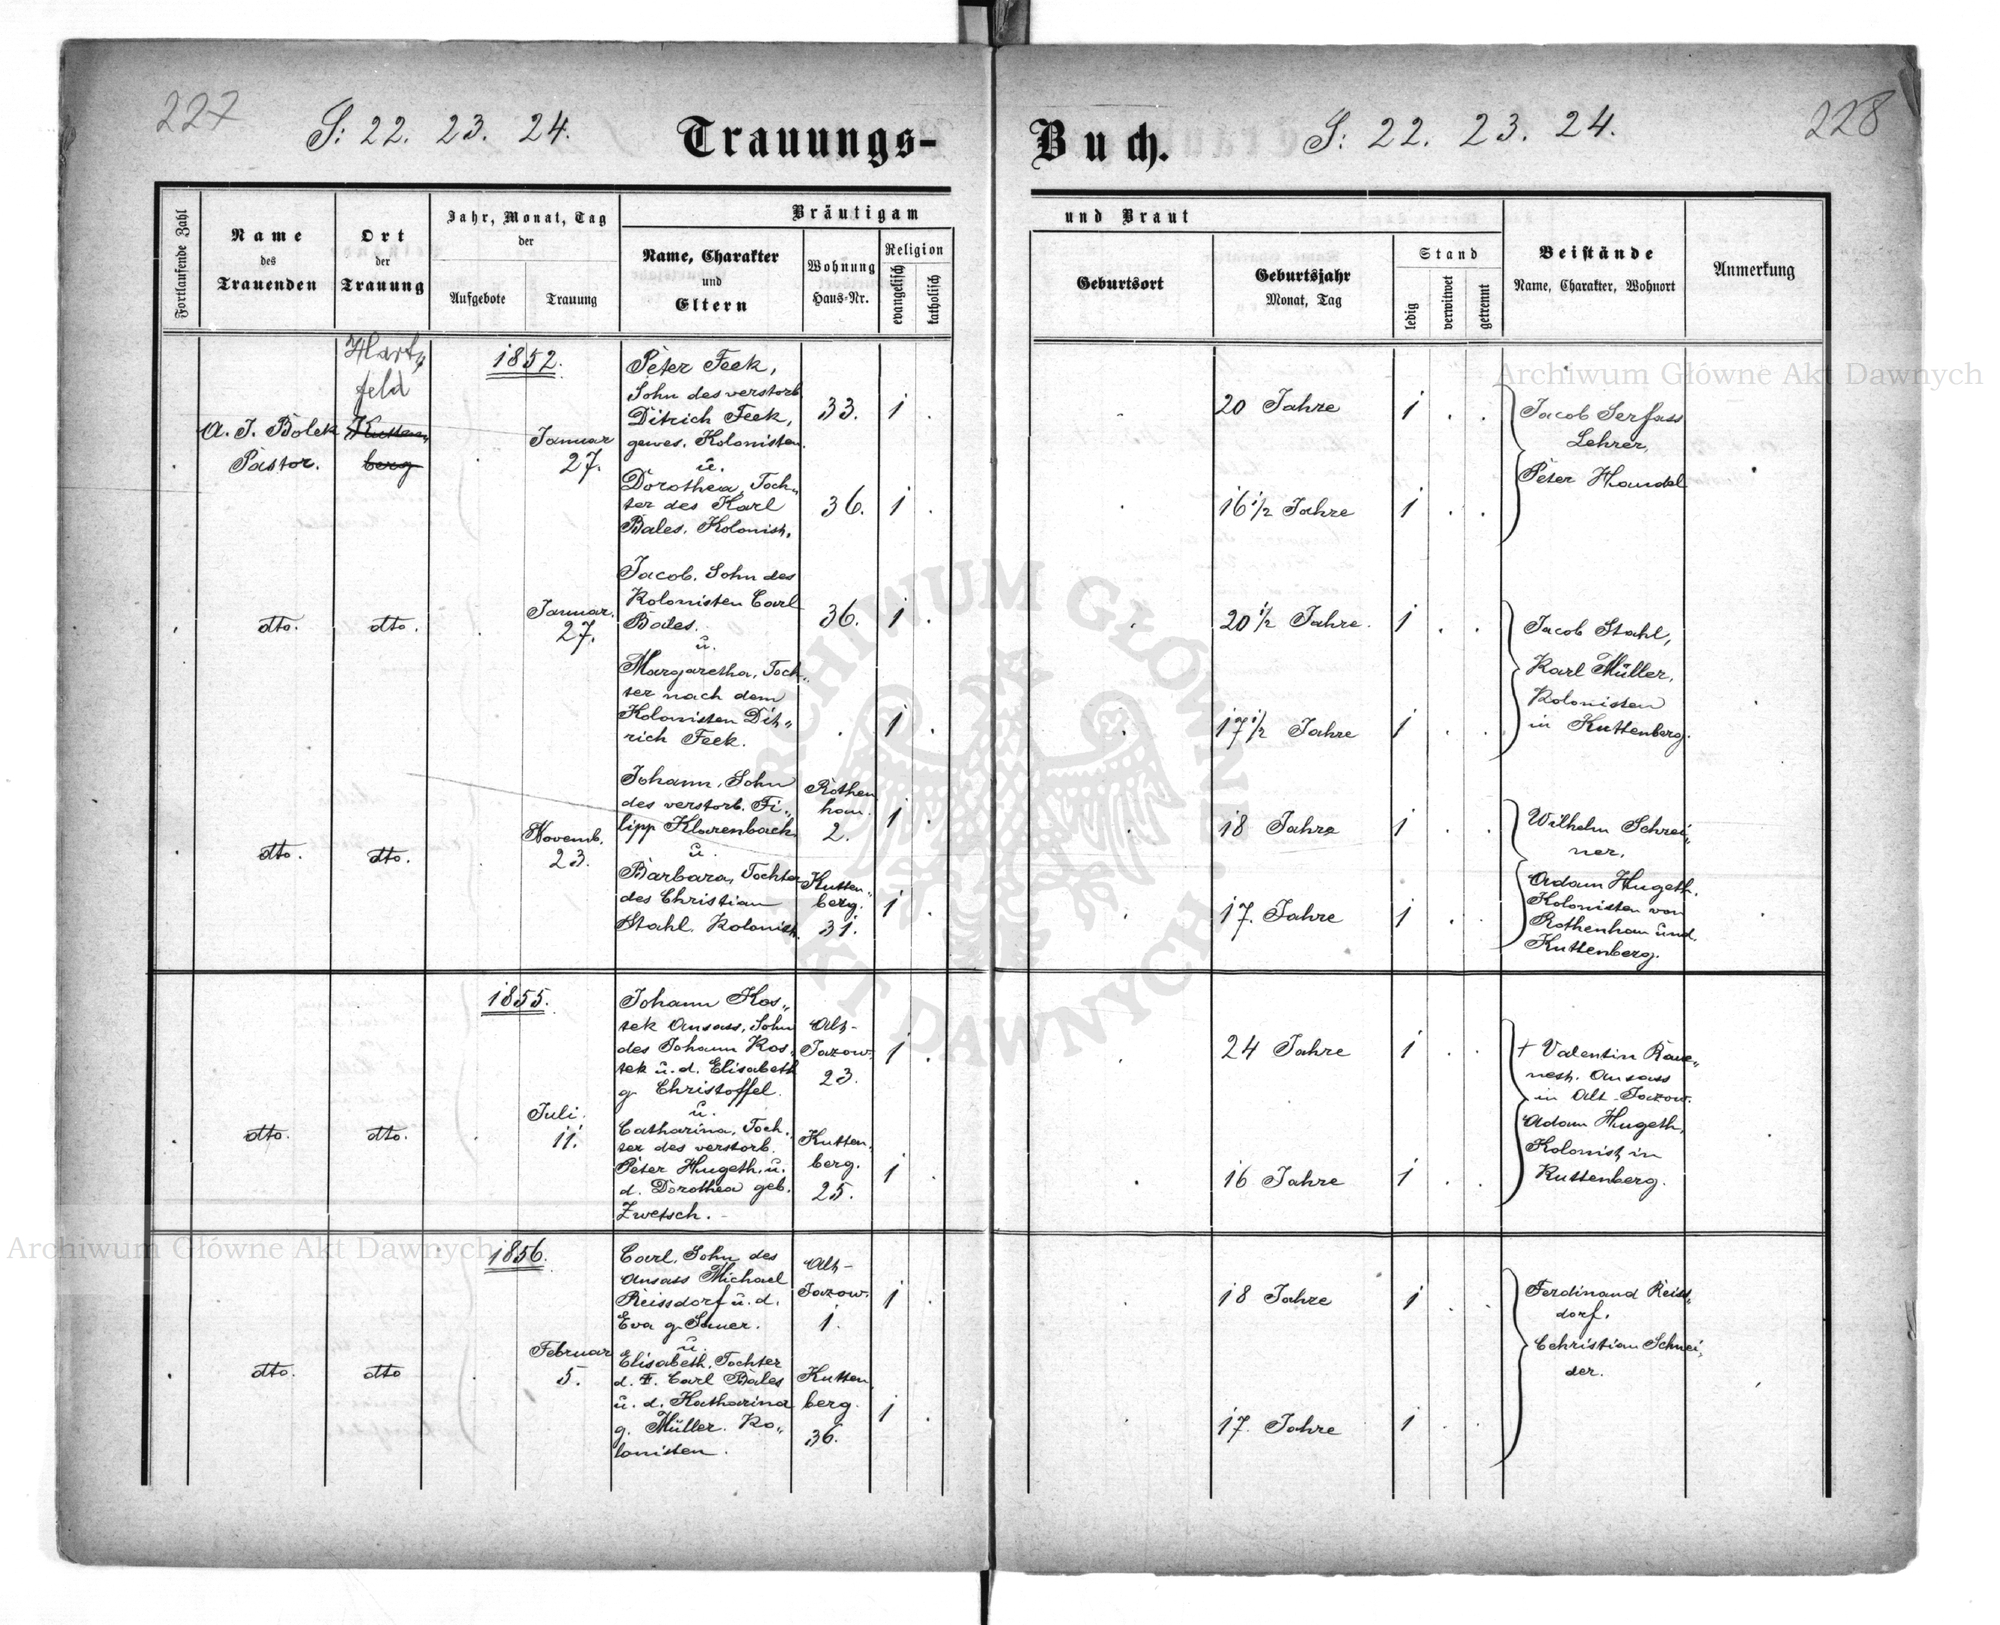 227
S: 22. 23. 24.
Trauungs-
Buch.
S: 22. 23. 24.
228
Fortlaufende Zahl
Name
des
Trauenden
Ort
der
Trauung
Jahr, Monat, Tag
der
Aufgebote
Trauung
Bräutigam
Name, Charakter
und
Eltern
Wohnung
Haus-Nr.
Religion
evangelisch
katholisch
und Braut
Geburtsort
Geburtsjahr
Monat, Tag
Stand
ledig
verwitwet
getrennt
Beistände
Name, Charakter, Wohnort
Anmerkung
A. J. Bolek
Pastor.
Hartz
feld
Kutten„
berg
1852.
Januar
27.
Peter Feek,
Sohn des verstorb.
Ditrich Feek,
gewes. Kolonisten.
ü.
Dorothea, Toch„
ter des Karl
Bales, Kolonist.
33.
1 .
36.
1 .
20 Jahre
1 . .
16 1/2 Jahre
1 . .
Jacob Serfass
Lehrer,
Peter Handel
dto.
dto.
Januar.
27.
Jacob, Sohn des
Kolonisten Carl
Bales.
ü.
Margaretha, Toch„
ter nach dem
Kolonisten Dit„
rich Feek.
36.
1 .
.
1 .
20 1/2 Jahre.
1 . .
17 1/2 Jahre
1 . .
Jacob Stahl,
Karl Müller,
Kolonisten
in Kuttenberg.
dto.
dto.
Novemb.
23.
Johann, Sohn
des verstorb. Fi„
lipp Klarenbach
ü.
Barbara, Tochter
des Christian
Stahl, Kolonist.
Rothen
han.
2.
1 .
Kutten„
berg.
31.
1 .
18 Jahre
1 . .
17. Jahre
1 . .
Wilhelm Schrei„
ner,
Adam Hugeth.
Kolonisten von
Rothenhan und.
Kuttenberg.
dto.
dto.
1855.
Juli.
11.
Johann Kos„
tek Ansass, Sohn
des Johann Kos„
tek ü. d. Elisabeth
g. Christoffel.
ü.
Catharina, Toch„
ter des verstorb.
Peter Hugeth, ü.
d. Dorothea geb.
Zwetsch.
Alt-
Jazow.
23.
1 .
Kutten„
berg.
25.
1 .
24 Jahre
1 . .
16 Jahre
1 . .
+ Valentin Raue„
nest. Ansass
in Alt-Jazow.
Adam Hugeth,
Kolonist in
Kuttenberg.
dto.
dto
1856.
Februar
5.
Carl, Sohn des
Ansass Michael
Reissdorf ü. d.
Eva g. Sauer.
ü.
Elisabeth, Tochter
d. Carl Bales
ü. d. Katharina
g. Müller. Ko„
lonisten.
Alt-
Jazow.
1.
1 .
Kutten„
berg.
36.
1 .
18 Jahre
1 . .
17. Jahre
1 . .
Ferdinand Reiss„
dorf.
Christian Schnei„
der.
Archiwum Główne Akt Dawnych
Archiwum Główne Akt Dawnych
ARCHIWUM GŁÓWNE
AKT DAWNYCH